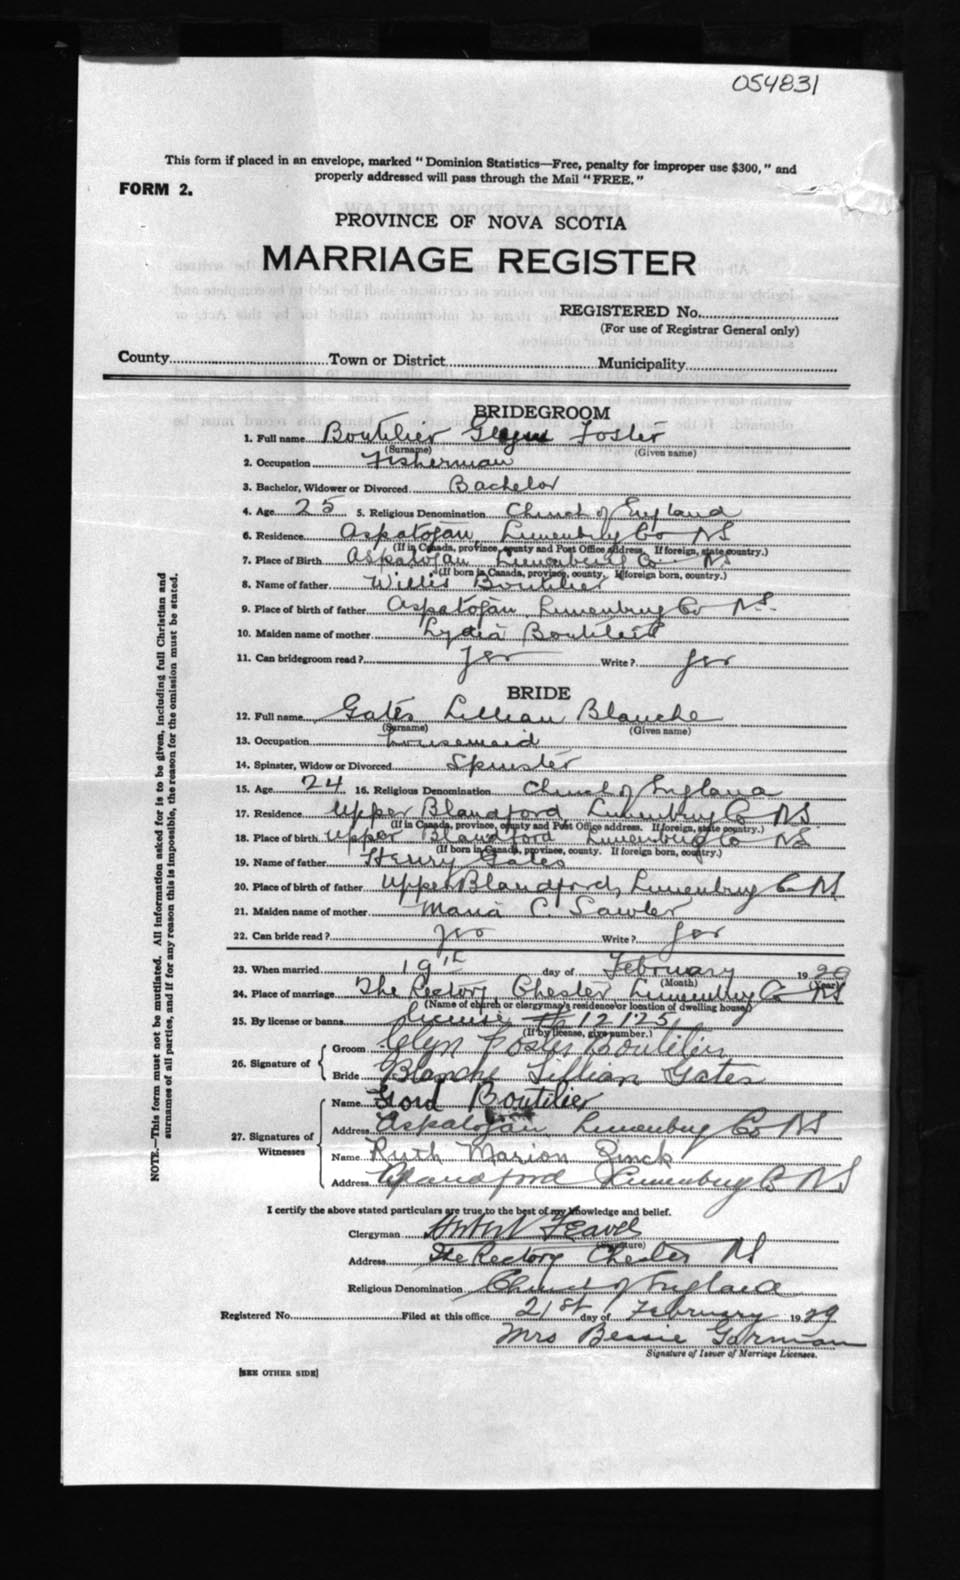 054831
This form if placed in an envelope, marked "Dominion Statistics—Free, penalty for improper use $300," and
properly addressed will pass through the Mail "FREE."
FORM 2.
PROVINCE OF NOVA SCOTIA
MARRIAGE REGISTER
REGISTERED No.
(For use of Registrar General only)
County Town or District Municipality
BRIDEGROOM
1. Full name Boutilier Glyn Foster
(Surname) (Given name)
2. Occupation Fisherman
3. Bachelor, Widower or Divorced Bachelor
4. Age 25 5. Religious Denomination Church of England
6. Residence Aspatogan, Lunenburg Co NS
(If in Canada, province, county and Post Office address. If foreign, state country.)
7. Place of Birth Aspatogan Lunenburg Co NS
(If born in Canada, province, county. If foreign born, country.)
8. Name of father Willis Boutilier
9. Place of birth of father Aspatogan Lunenburg Co N.S.
10. Maiden name of mother Lydia Boutilier
11. Can bridegroom read? yes Write? yes
BRIDE
12. Full name Gates Lillian Blanche
(Surname) (Given name)
13. Occupation housemaid
14. Spinster, Widow or Divorced Spinster
15. Age 24 16. Religious Denomination Church of England
17. Residence Upper Blandford, Lunenburg Co NS
(If in Canada, province, county and Post Office address. If foreign, state country.)
18. Place of birth Upper Blandford Lunenburg Co NS
(If born in Canada, province, county. If foreign born, country.)
19. Name of father Henry Gates
20. Place of birth of father Upper Blandford, Lunenburg Co NS
21. Maiden name of mother Maria C. Sawler
22. Can bride read? yes Write? yes
23. When married 19th day of February 1929
(Month) (Year)
24. Place of marriage The Rectory Chester Lunenburg Co NS
(Name of church or clergyman's residence or location of dwelling house)
25. By license or banns license # 12123
(If by license, give number.)
26. Signature of
Groom Glyn Foster Boutilier
Bride Blanche Lillian Gates
27. Signatures of Witnesses
Name Boutilier
Address Aspatogan Lunenburg Co NS
Name Ruth Marion Zinck
Address Blandford Lunenburg Co NS
I certify the above stated particulars are true to the best of my knowledge and belief.
Clergyman
(Signature)
Address The Rectory Chester NS
Religious Denomination Church of England
Registered No. Filed at this office 21st day of February 1929
Mrs Bessie Gorman
Signature of Issuer of Marriage Licenses.
[SEE OTHER SIDE]
NOTE.—This form must not be mutilated. All information asked for is to be given, including full Christian and
surnames of all parties, and if for any reason this is impossible, the reason for the omission must be stated.